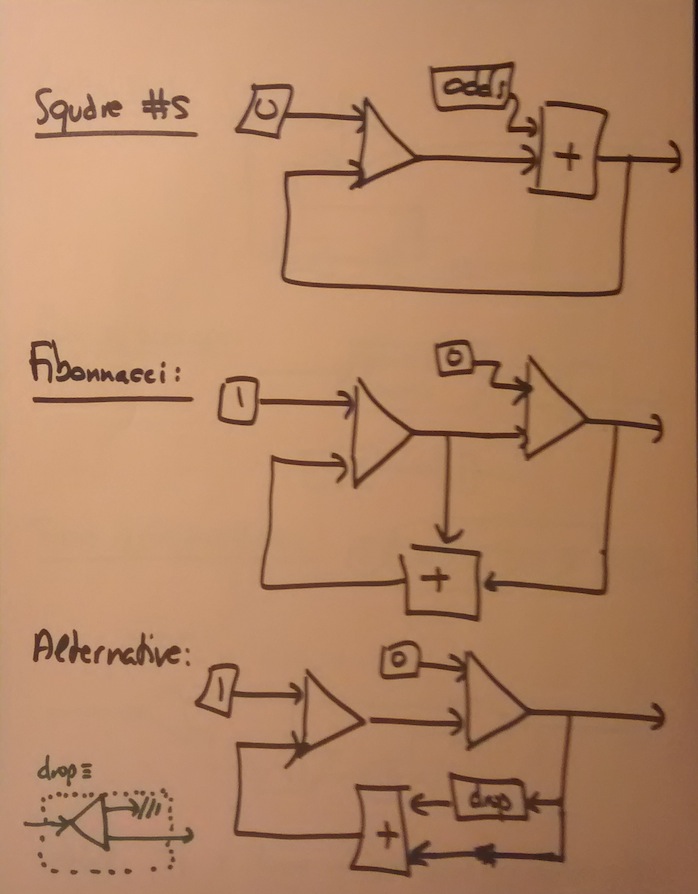 Square #s
0
odds
+
Fibonnacci:
1
0
+
Alternative:
1
0
drop
+
drop≡